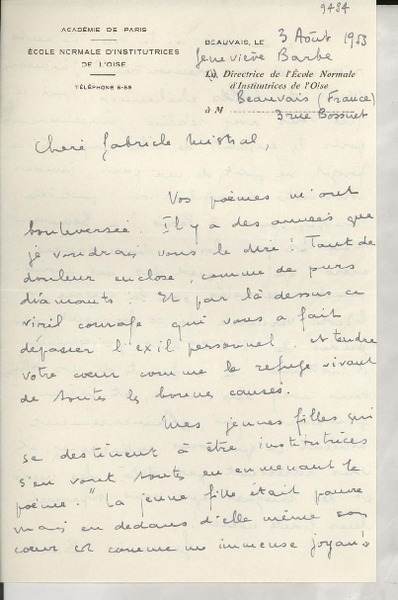 9484
ACADÉMIE DE PARIS
ÉCOLE NORMALE D'INSTITUTRICES
DE L'OISE
TÉLÉPHONE 6-59
BEAUVAIS, LE 3 Août 1953
Geneviève Barbe
La Directrice de l'École Normale
d'Institutrices de l'Oise
Beauvais (France)
à M
3 rue Bossuet
Chère Gabriele Mistral,
Vos poèmes m'ont
bouleversée. Il y a des années que
je voudrais vous le dire ! Tant de
douleur enclose, comme de purs
diamants ! Et par là dessus ce
viril courage qui vous a fait
dépasser l'exil personnel et tendre
votre cœur comme le refuge vivant
de toutes les bonnes causes.
Mes jeunes filles qui
se destinent à être institutrices
s'en vont toutes en emmenant le
poème. " La jeune fille était pauvre
mais en dedans d'elle même son
cœur est comme un immense joyau